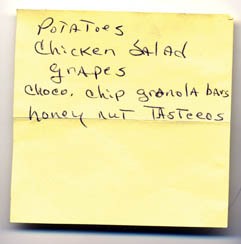 POTATOES
Chicken Salad
grapes
choco. chip granola bars
honey nut TASTEEOS